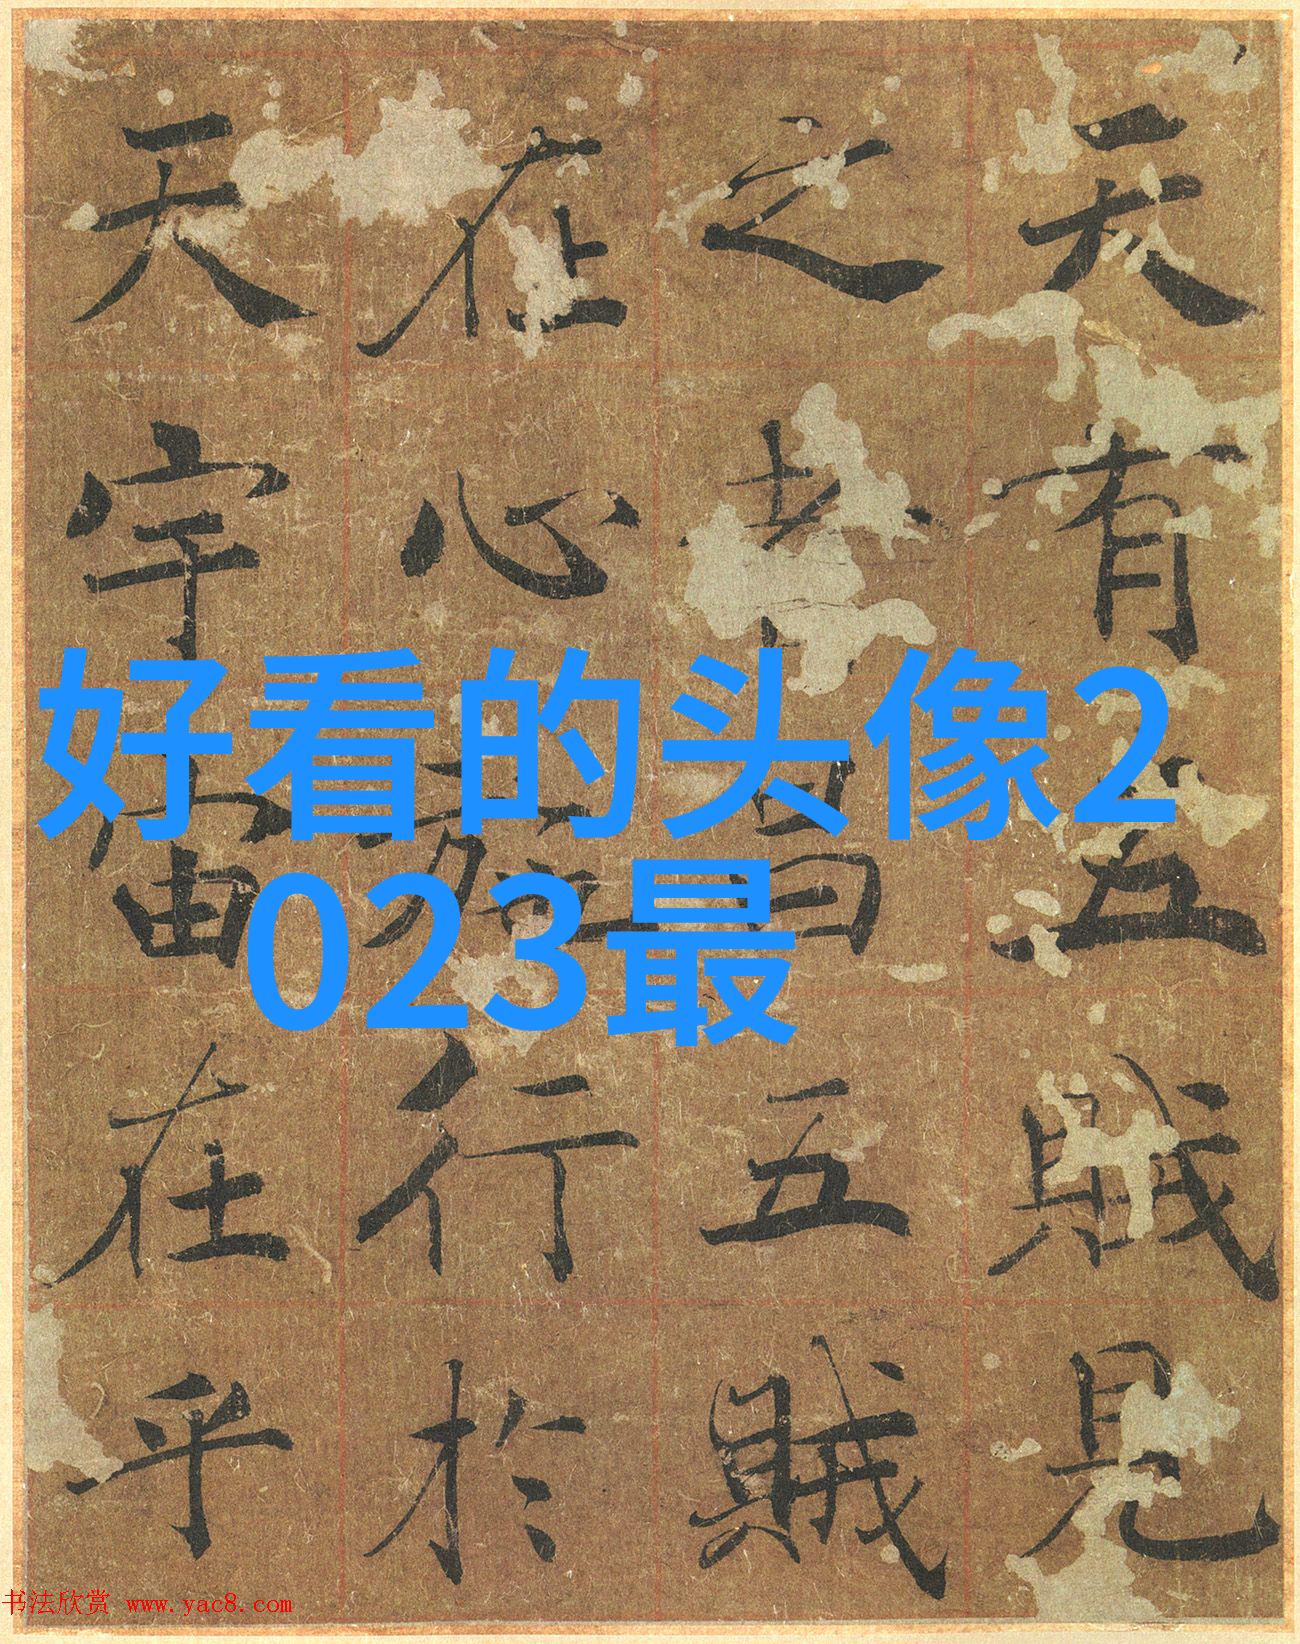 天有五賊見
之者昌五賊
在心施行於
天宇宙在乎
好看的头像2
023最
书法欣赏 www.yac8.com